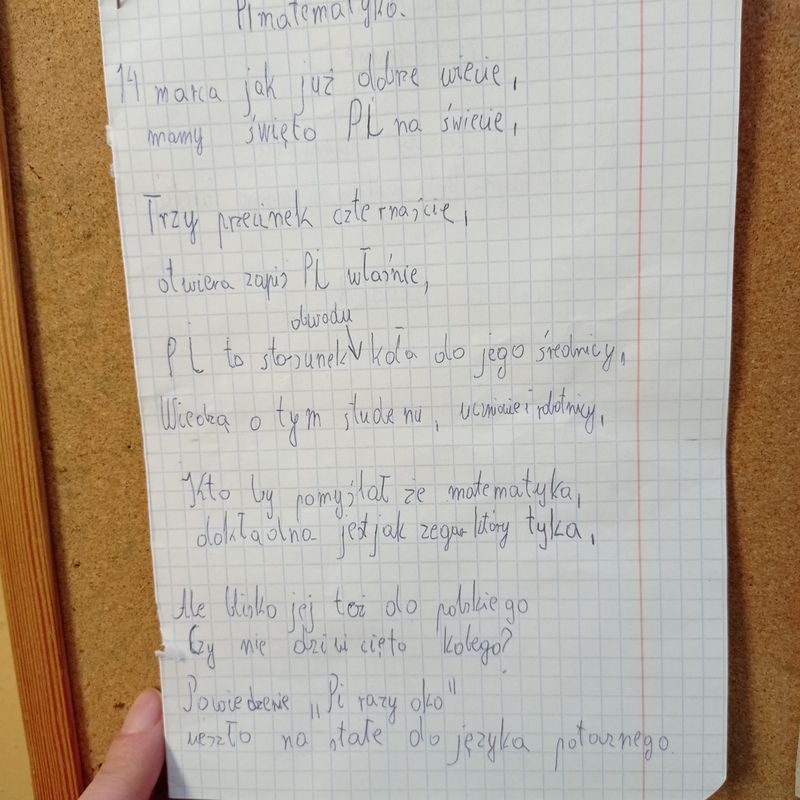 PImatematyko.
14 marca jak już dobrze wiecie,
mamy święto Pi na świecie,
Trzy przecinek czternaście,
otwiera zapis Pi właśnie,
obwodu
Pi to stosunek koła do jego średnicy,
Wiedzą o tym studenci, uczniowie i robotnicy,
Kto by pomyślał że matematyka,
dokładna jest jak zegar który tyka,
Ale blisko jej też do polskiego
Czy nie dziwi cię to kolego?
Powiedzenie „Pi razy oko"
weszło na stałe do języka potocznego.